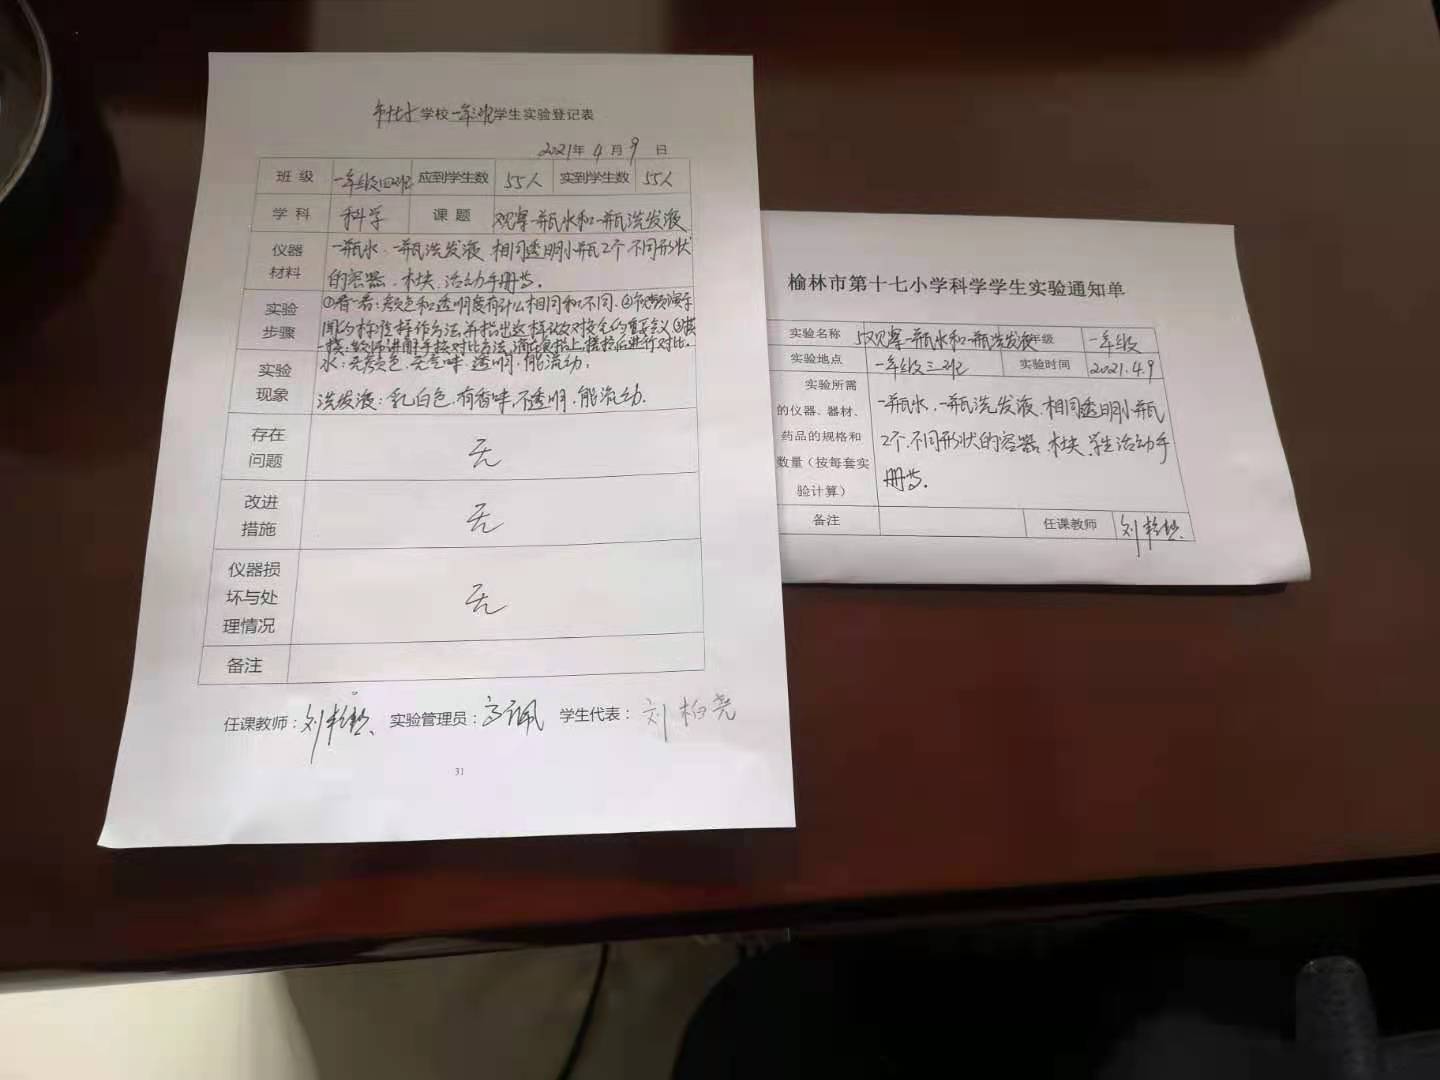 市十七小学校一年三班学生实验登记表
2021年4月9日
班级 一年级四班 应到学生数 55人 实到学生数 55人
学科 科学 课题 观察一瓶水和一瓶洗发液
仪器材料 一瓶水、一瓶洗发液 相同透明小瓶2个 不同形状
的容器、木块、活动手册等.
实验步骤 ①看一看:颜色和透明度有什么相同和不同.②视频演示
闻的标准操作方法,并指出这样做对安全的重要意义③摸
一摸:教师讲解手捻对比方法,滴在食指上,搓捻后进行对比.
实验现象 水:无颜色、无气味、透明、能流动.
洗发液:乳白色、有香味、不透明、能流动.
存在问题 无
改进措施 无
仪器损坏与处理情况 无
备注
任课教师: 实验管理员:高佩 学生代表:刘柏尧
31
榆林市第十七小学科学学生实验通知单
实验名称 5观察一瓶水和一瓶洗发液 年级 一年级
实验地点 一年级三班 实验时间 2021.4.9
实验所需的仪器、器材、药品的规格和数量（按每套实验计算） 一瓶水、一瓶洗发液、相同透明小瓶
2个、不同形状的容器、木块、学生活动手
册等.
备注 任课教师